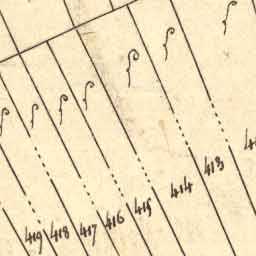 419 418 417 416 415 414 413